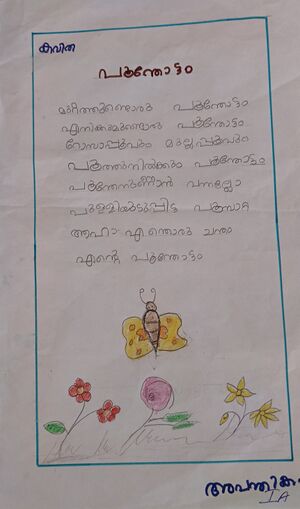 കവിത
പൂന്തോട്ടം
മുറ്റത്തുണ്ടൊരു പൂന്തോട്ടം
എനിക്കുമുണ്ടൊരു പൂന്തോട്ടം
റോസാപ്പൂവും മുല്ലപ്പൂവും
പൂത്തുനിൽക്കും പൂന്തോട്ടം
പൂന്തേനുണ്ണാൻ വന്നല്ലോ
പുള്ളിയുടുപ്പിട്ട പൂമ്പാറ്റ
ആഹാ എന്തൊരു ചന്തം
എന്റെ പൂന്തോട്ടം
അവന്തിക
I A